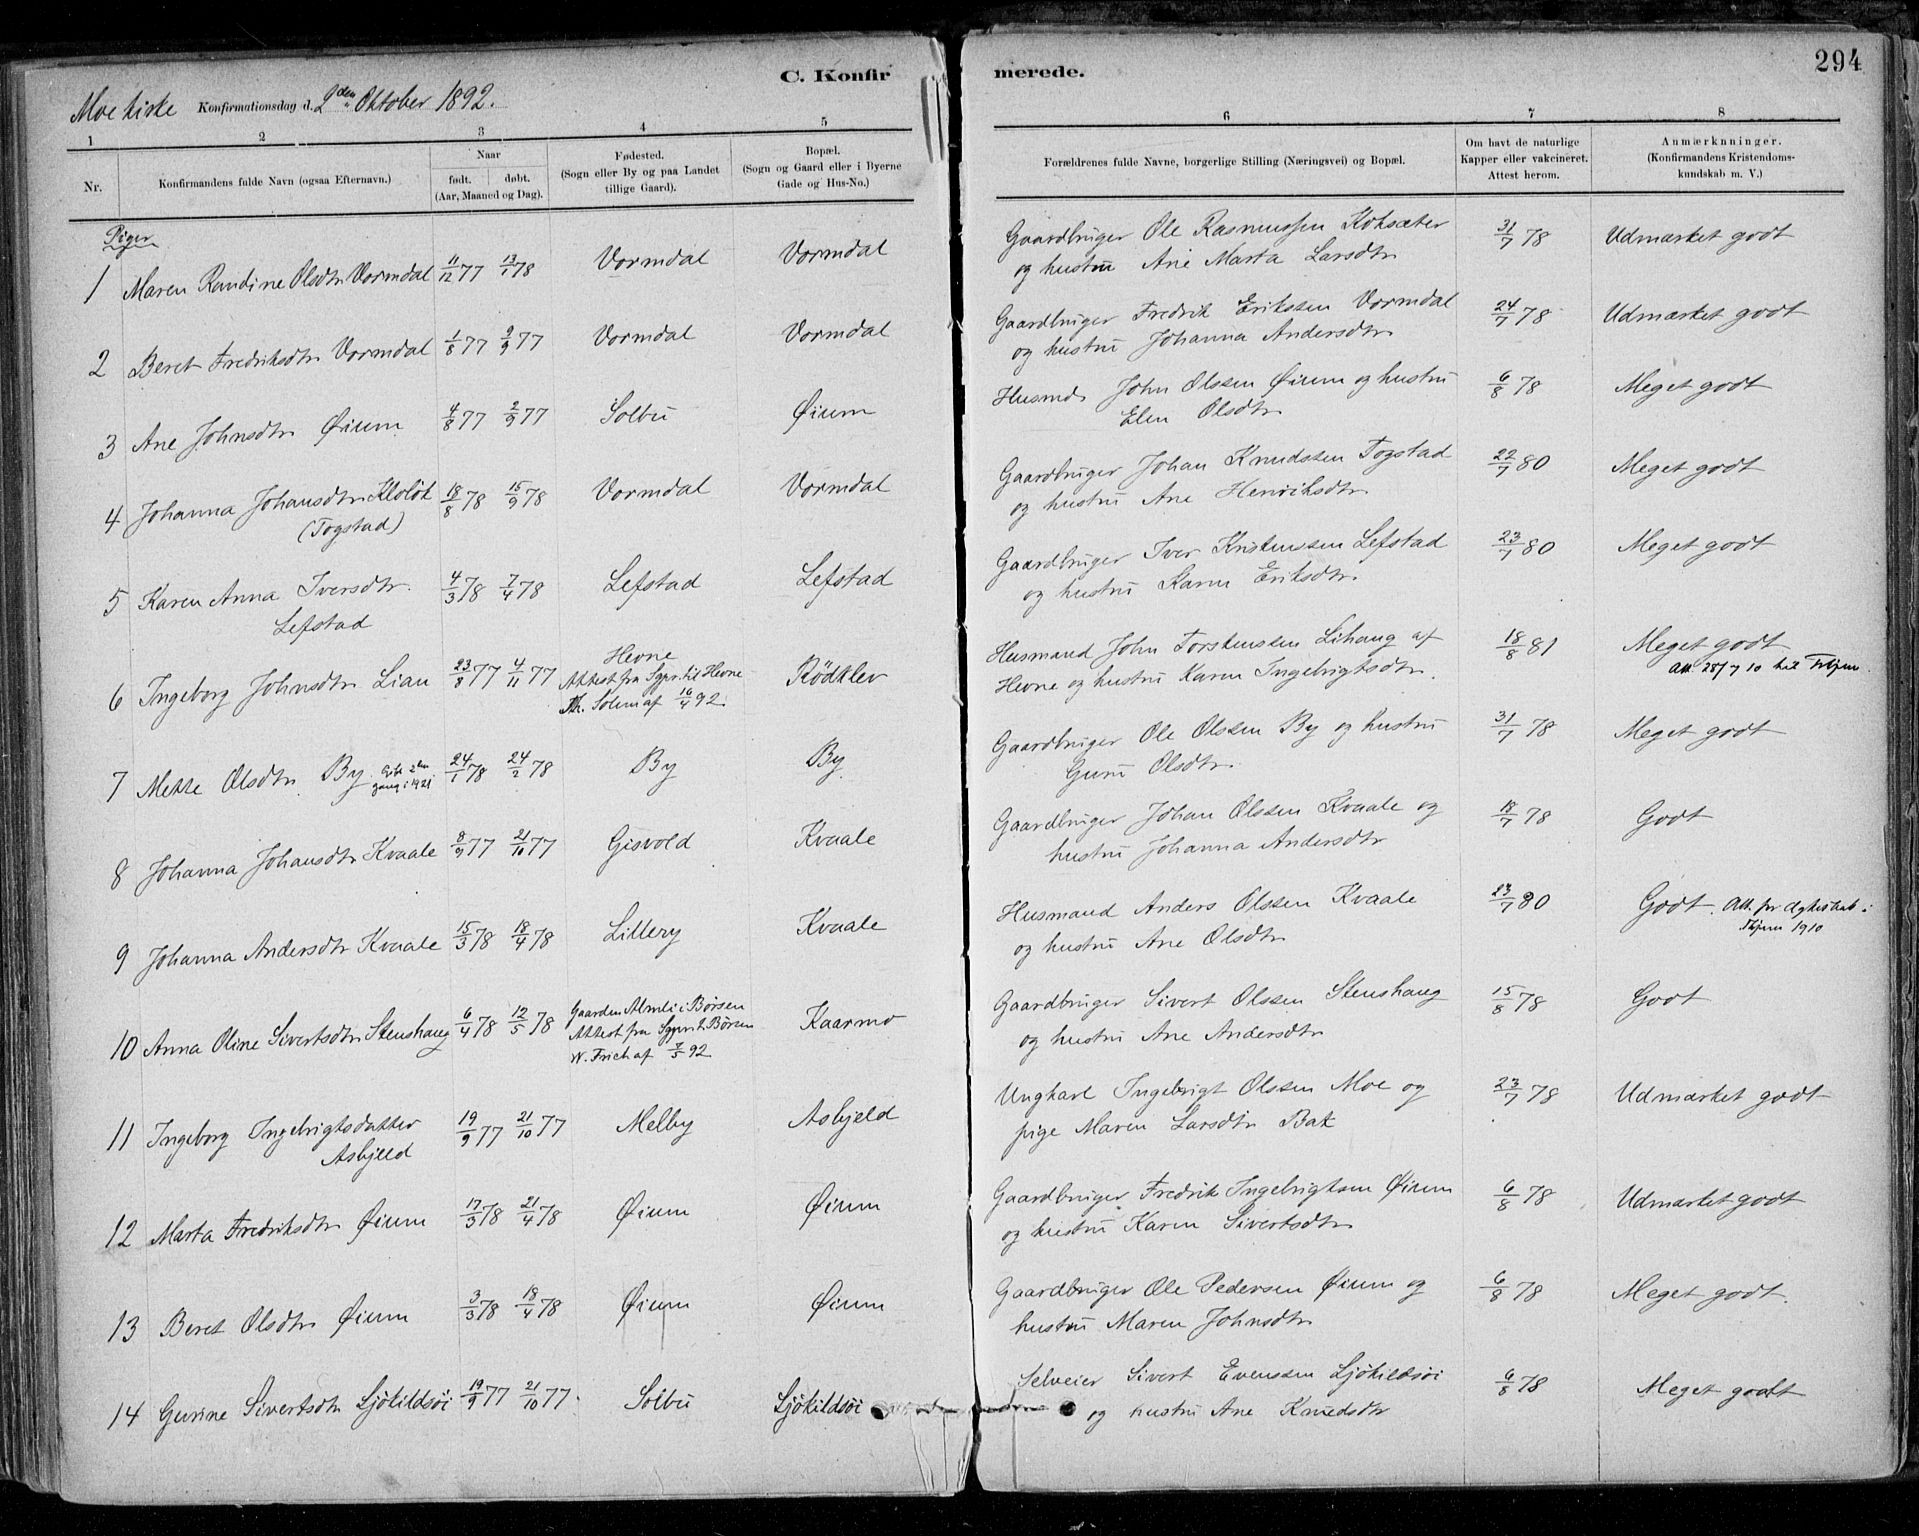 C. Konfirmerede.
294
Moe kirke Konfirmationsdag d. 2den Oktober 1892.
1 2 3 4 5 6 7 8
Nr.
Konfirmandens fulde Navn (ogsaa Efternavn.)
Naar
født. døbt.
(Aar, Maaned og Dag).
Fødested.
(Sogn eller By og paa Landet
tillige Gaard).
Bopæl.
(Sogn og Gaard eller i Byerne
Gade og Hus-No.)
Forældrenes fulde Navne, borgerlige Stilling (Næringsvei) og Bopæl.
Om havt de naturlige
Kapper eller vakcineret.
Attest herom.
Anmærknninger.
(Konfirmandens Kristendoms-
kundskab m. V.)
Piger
1 Maren Randine Olsdtr Vormdal 11/12 77 13/1 78 Vormdal Vormdal
Gaardbruger Ole Rasmussen Koksæter
og hustru Ane Marta Larsdtr
31/7 78 Udmærket godt
2 Beret Fredriksdtr Vormdal 1/8 77 2/9 77 Vormdal Vormdal
Gaardbruger Fredrik Eriksen Vormdal
og hustru Johanna Andersdtr
24/7 78 Udmærket godt
3 Ane Johnsdtr Øium 4/8 77 2/9 77 Solbu Øium
Husmd. John Olssen Øium og hustru
Elen Olsdtr
6/8 78 Meget godt
4 Johanna Johansdtr Kloløk
(Togstad)
18/8 78 15/9 78 Vormdal Vormdal
Gaardbruger Johan Knudssen Togstad
og hustru Ane Henriksdtr
22/7 80 Meget godt
5 Karen Anna Iversdtr.
Lefstad
4/3 78 7/4 78 Lefstad Lefstad
Gaardbruger Iver Kristenssen Lefstad
og hustru Karen Eriksdtr.
23/7 80 Meget godt
6 Ingeborg Johnsdtr Lian 23/8 77 4/11 77
Hevne
Attest fra Sgpr. til Hevne
Th. Solem af 16/4 92.
Rödklev
Husmand John Torstenssen Lihaug af
Hevne og hustru Karen Ingebrigtsdtr.
18/8 81 Meget godt
Att. 28/7 10 til Thjem
7 Mette Olsdtr. By. Gift 2den
gang i 1921
24/1 78 24/2 78 By By
Gaardbruger Ole Olssen By og hustru
Guru Olsdtr.
31/7 78 Meget godt
8 Johanna Johansdtr Kvaale 8/9 77 21/10 77 Gisvold Kvaale
Gaardbruger Johan Olssen Kvaale og
hustru Johanna Andersdtr
18/7 78 Godt
9 Johanna Andersdtr Kvaale 15/3 78 18/4 78 Lillery Kvaale
Husmand Anders Olssen Kvaale
og hustru Ane Olsdtr
23/7 80 Godt. Att. for ægteskab i
Thjem 1910
10 Anna Oline Sivertsdtr Stenshaug 6/4 78 12/5 78
Gaarden Almli i Børsen
Attest fra Sgpr. t. Børsen
W. Frich af 7/5 92
Kaarmo
Gaardbruger Sivert Olssen Stenshaug
og hustru Ane Andersdtr
15/8 78 Godt
11 Ingeborg Ingebrigtsdatter
Asbjeld
19/9 77 21/10 77 Melby Asbjeld
Ungkarl Ingebrigt Olssen Moe og
pige Maren Larsdtr Bak
23/7 78 Udmærket godt
12 Marta Fredriksdtr Øium 17/3 78 21/4 78 Øium Øium
Gaardbruger Fredrik Ingebrigtsen Øium
og hustru Karen Sivertsdtr
6/8 78 Udmærket godt
13 Beret Olsdtr Øium 3/3 78 18/4 78 Øium Øium
Gaardbruger Ole Pedersen Øium og
hustru Maren Johnsdtr
6/8 78 Meget godt.
14 Gurine Sivertsdtr Ljökildsöi 19/9 77 21/10 77. Solbu Ljökildsöi
Selveier Sivert Evenssen Ljökildsöi
og hustru Ane Knudsdtr
6/8 78 Meget godt